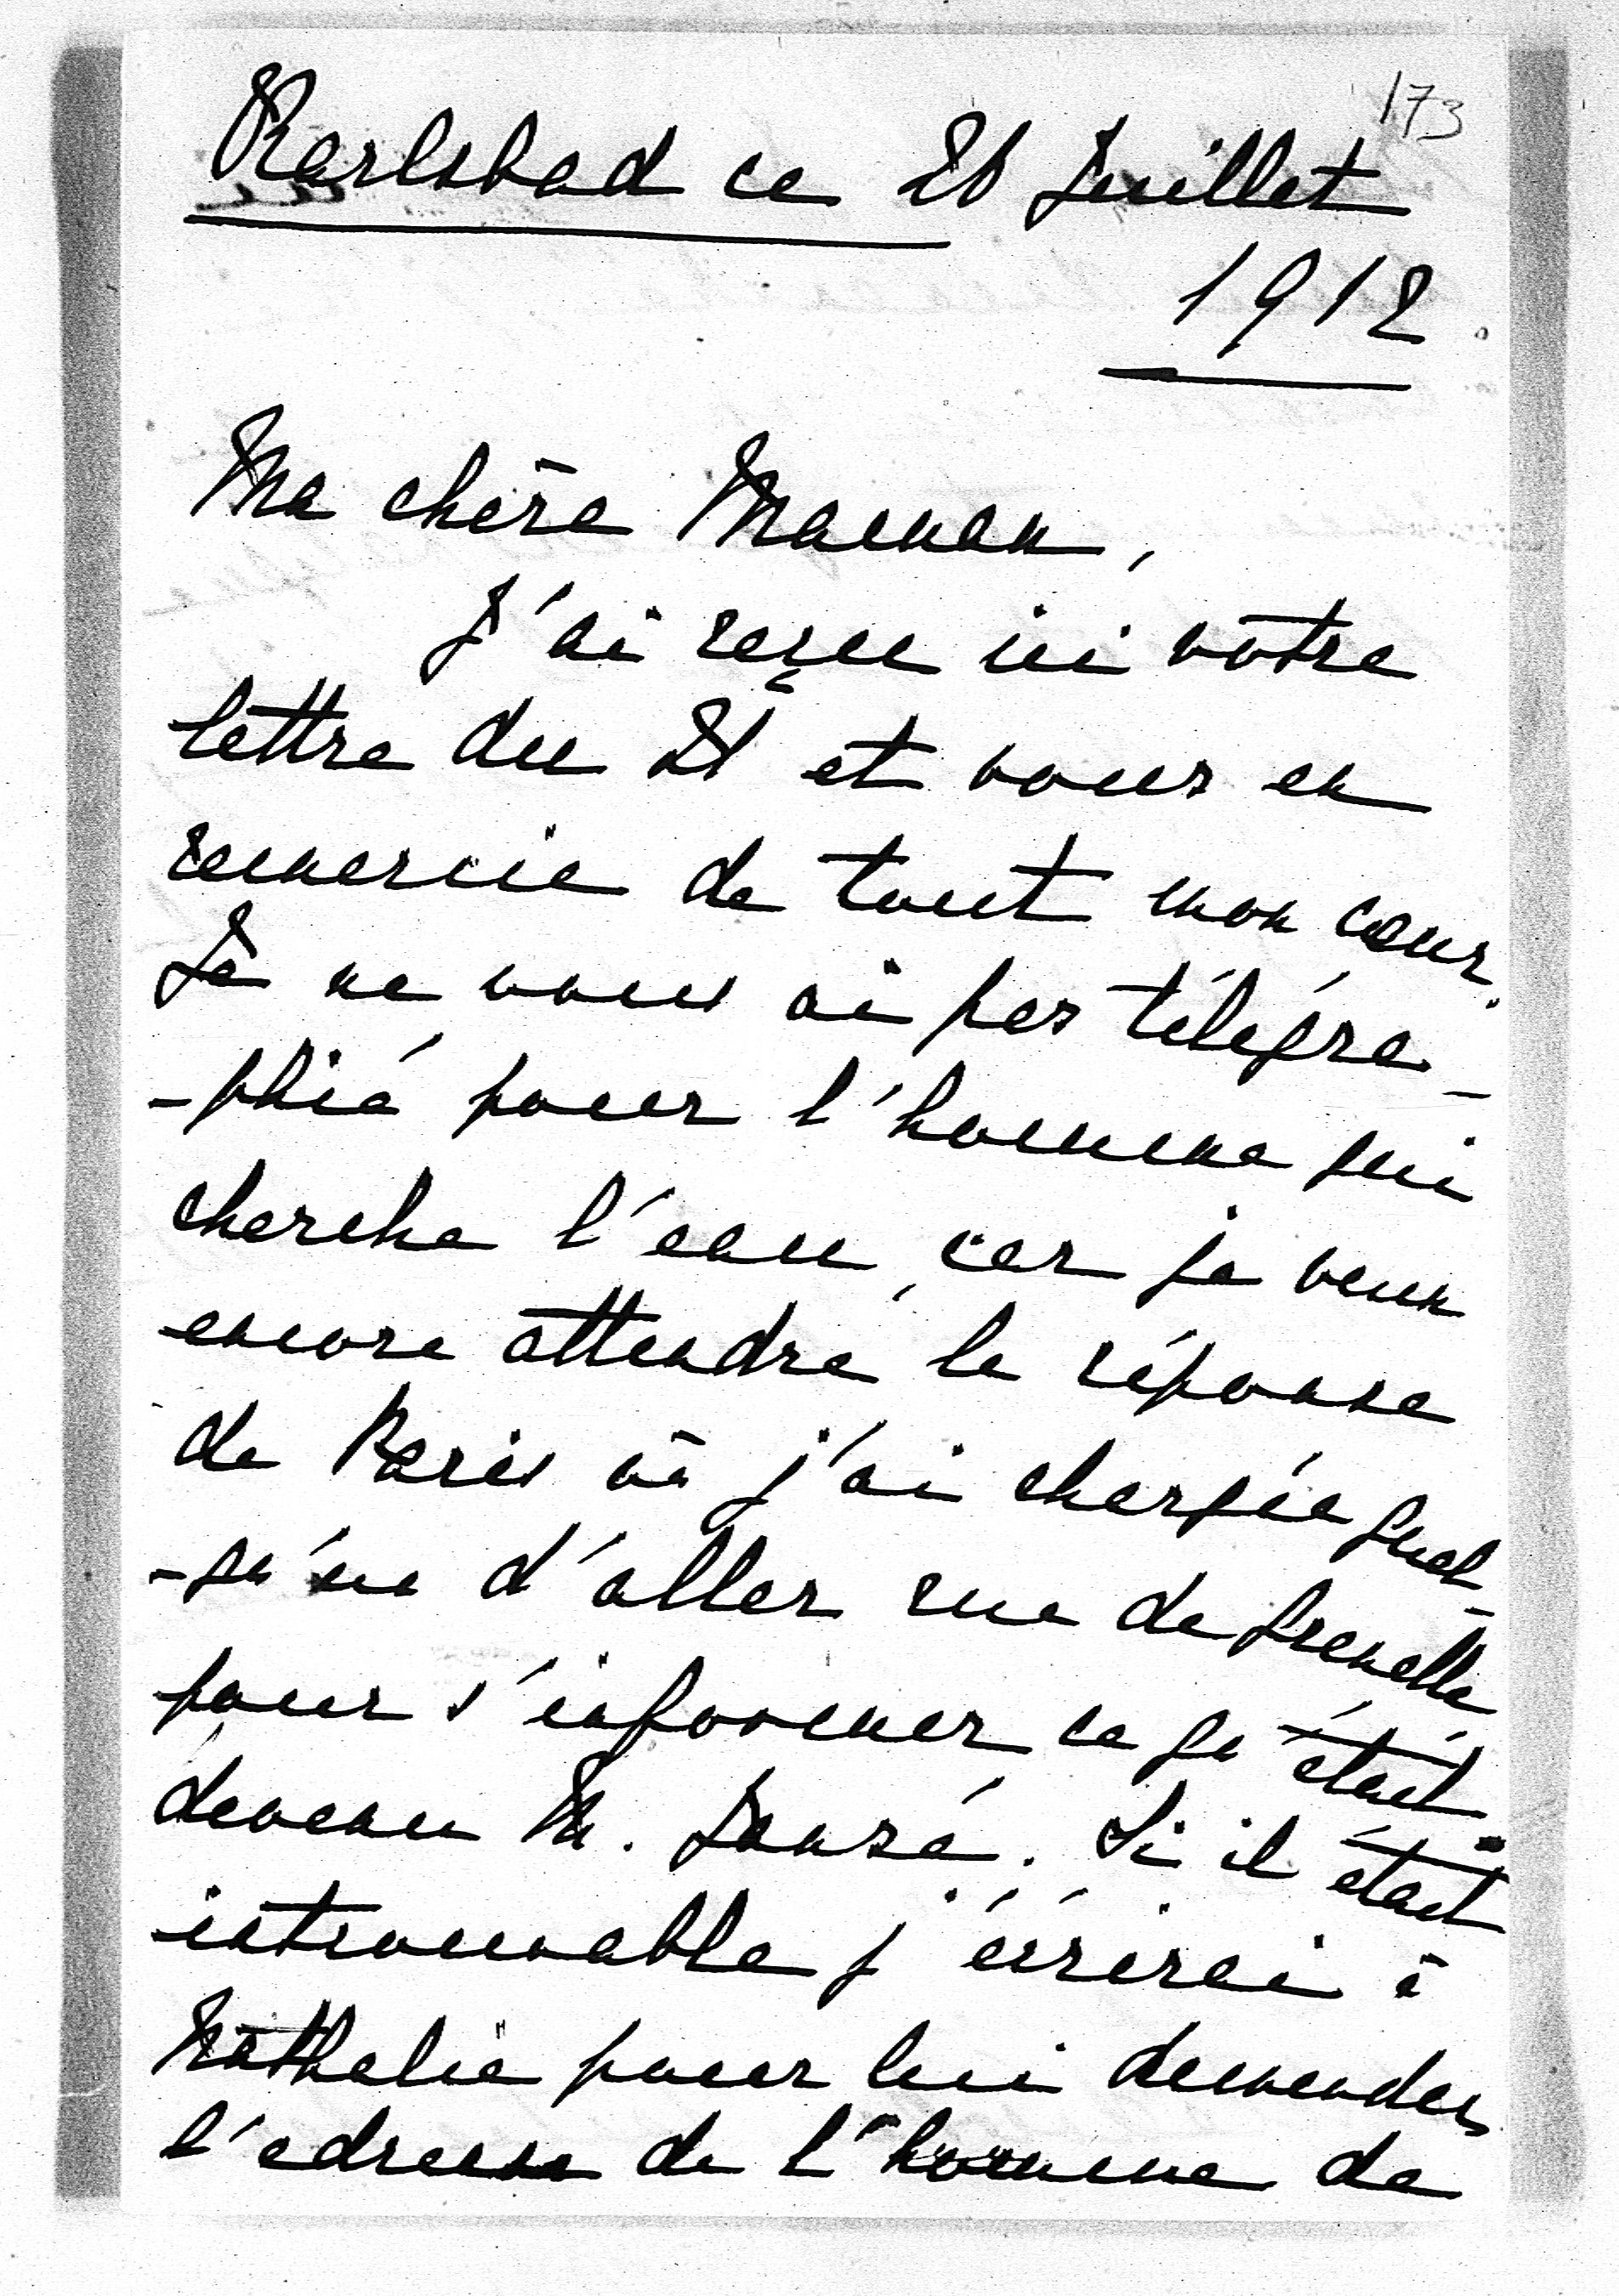 173
Karlsbad ce 26 Juillet
1912
Ma chère Maman,
J'ai reçu ici votre
lettre du 21 et vous en
remercie de tout mon cœur.
Je ne vous ai pas télégra-
-phié pour l'homme qui
cherche l'eau, car je veux
encore attendre la réponse
de Paris où j'ai chargée quel-
-qu'un d'aller rue de Grenelle
pour s'informer ce qu'était
devenu M. Jansé. Si il était
introuvable j'écrirai à
Nathalie pour lui demander
l'adresse de l'homme de